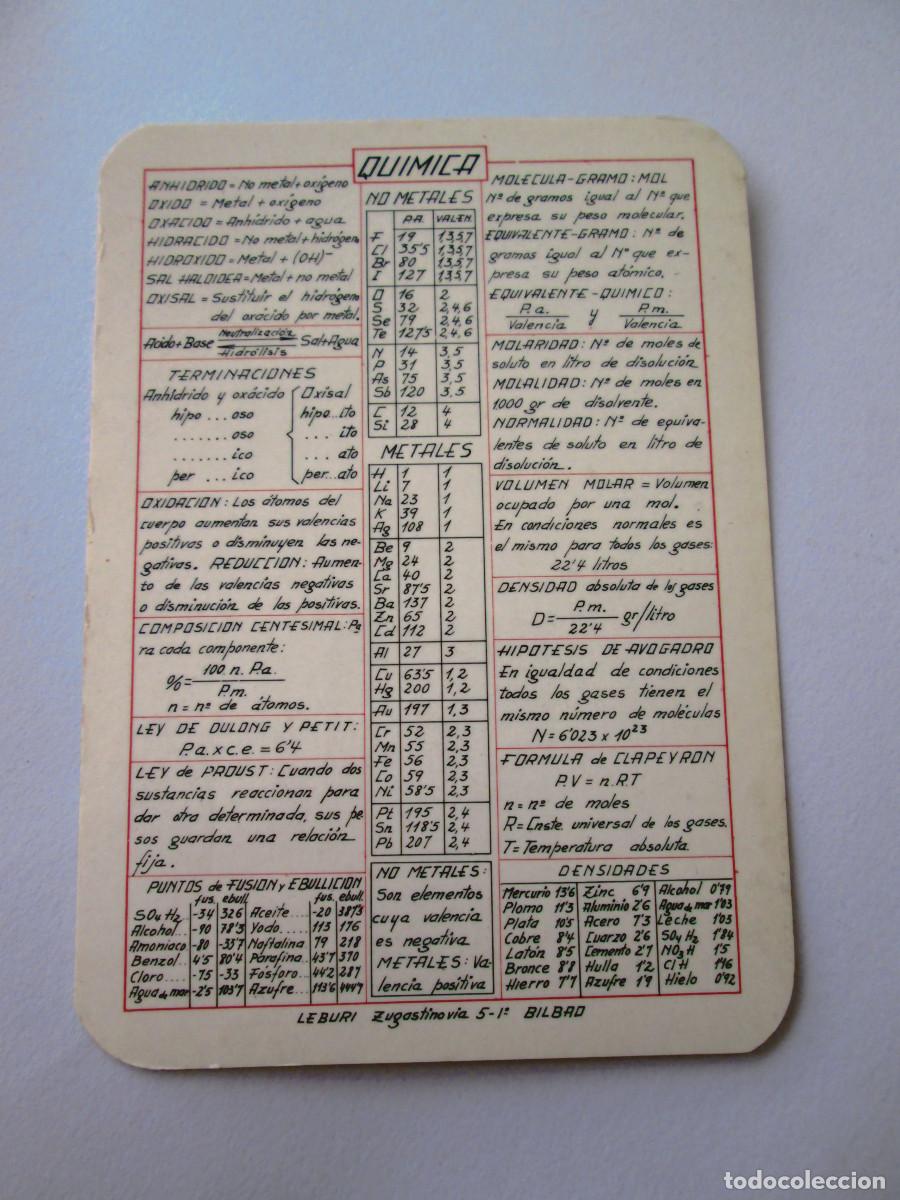 QUIMICA
ANHIDRIDO = No metal + oxígeno
OXIDO = Metal + oxígeno
OXACIDO = Anhídrido + agua
HIDRACIDO = No metal + hidrógeno
HIDROXIDO = Metal + (OH)⁻
SAL HALOIDEA = Metal + no metal
OXISAL = Sustituir el hidrógeno
del oxácido por metal.
Neutralización
Acido + Base Sal + Agua
Hidrólisis
TERMINACIONES
Anhídrido y oxácido { Oxisal
hipo ... oso hipo...ito
....... oso ... ito
....... ico ... ato
per ... ico per...ato
OXIDACION: Los átomos del
cuerpo aumentan sus valencias
positivas o disminuyen las ne-
gativas. REDUCCION: Aumen-
to de las valencias negativas
o disminución de las positivas.
COMPOSICION CENTESIMAL: Pa
ra cada componente:
% = 100 n. P.a. / P.m.
n = nº de átomos.
LEY DE DULONG Y PETIT:
P.a. x c.e. = 6'4
LEY de PROUST: Cuando dos
sustancias reaccionan para
dar otra determinada, sus pe
sos guardan una relación
fija.
PUNTOS de FUSION y EBULLICION
fus. ebull. fus. ebull.
SO₄H₂ -34 326 Aceite... -20 387'3
Alcohol... -90 78'3 Yodo... 113 176
Amoniaco -80 -35'7 Naftalina 79 218
Benzol.. 4'5 80'4 Parafina 43'7 370
Cloro.... -75 -33 Fósforo... 44'2 287
Agua de mar -2'5 103'7 Azufre... 113'6 444'7
NO METALES
P.A. VALEN.
F 19 1,3,5,7
Cl 35'5 1,3,5,7
Br 80 1,3,5,7
I 127 1,3,5,7
O 16 2
S 32 2,4,6
Se 79 2,4,6
Te 127'5 2,4,6
N 14 3,5
P 31 3,5
As 75 3,5
Sb 120 3,5
C 12 4
Si 28 4
METALES
H 1 1
Li 7 1
Na 23 1
K 39 1
Ag 108 1
Be 9 2
Mg 24 2
Ca 40 2
Sr 87'5 2
Ba 137 2
Zn 65 2
Cd 112 2
Al 27 3
Cu 63'5 1,2
Hg 200 1,2
Au 197 1,3
Cr 52 2,3
Mn 55 2,3
Fe 56 2,3
Co 59 2,3
Ni 58'5 2,3
Pt 195 2,4
Sn 118'5 2,4
Pb 207 2,4
NO METALES:
Son elementos
cuya valencia
es negativa
METALES: Va-
lencia positiva
MOLECULA-GRAMO: MOL
Nº de gramos igual al Nº que
expresa su peso molecular.
EQUIVALENTE-GRAMO: Nº de
gramos igual al Nº que ex-
presa su peso atómico.
EQUIVALENTE-QUIMICO:
P.a. / Valencia y P.m. / Valencia
MOLARIDAD: Nº de moles de
soluto en litro de disolución
MOLALIDAD: Nº de moles en
1000 gr de disolvente.
NORMALIDAD: Nº de equiva-
lentes de soluto en litro de
disolución.
VOLUMEN MOLAR = Volumen
ocupado por una mol.
En condiciones normales es
el mismo para todos los gases:
22'4 litros
DENSIDAD absoluta de los gases
D = P.m. / 22'4 gr/litro
HIPOTESIS DE AVOGADRO
En igualdad de condiciones
todos los gases tienen el
mismo número de moléculas
N = 6'023 x 10²³
FORMULA de CLAPEYRON
P.V = n.RT
n = nº de moles
R = Cnste. universal de los gases.
T = Temperatura absoluta.
DENSIDADES
Mercurio 13'6 Zinc 6'9 Alcohol 0'79
Plomo 11'3 Aluminio 2'6 Agua de mar 1'03
Plata 10'5 Acero 7'3 Leche 1'03
Cobre 8'4 Cuarzo 2'6 SO₄H₂ 1'84
Latón 8'5 Cemento 2'7 NO₃H 1'5
Bronce 8'8 Hulla 1'2 ClH 1'16
Hierro 7'7 Azufre 1'9 Hielo 0'92
LEBURI Zugastinovia 5-1º BILBAO
todocoleccion